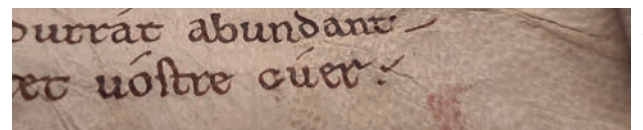 durrát abundant
et uóſtre cúer⁊